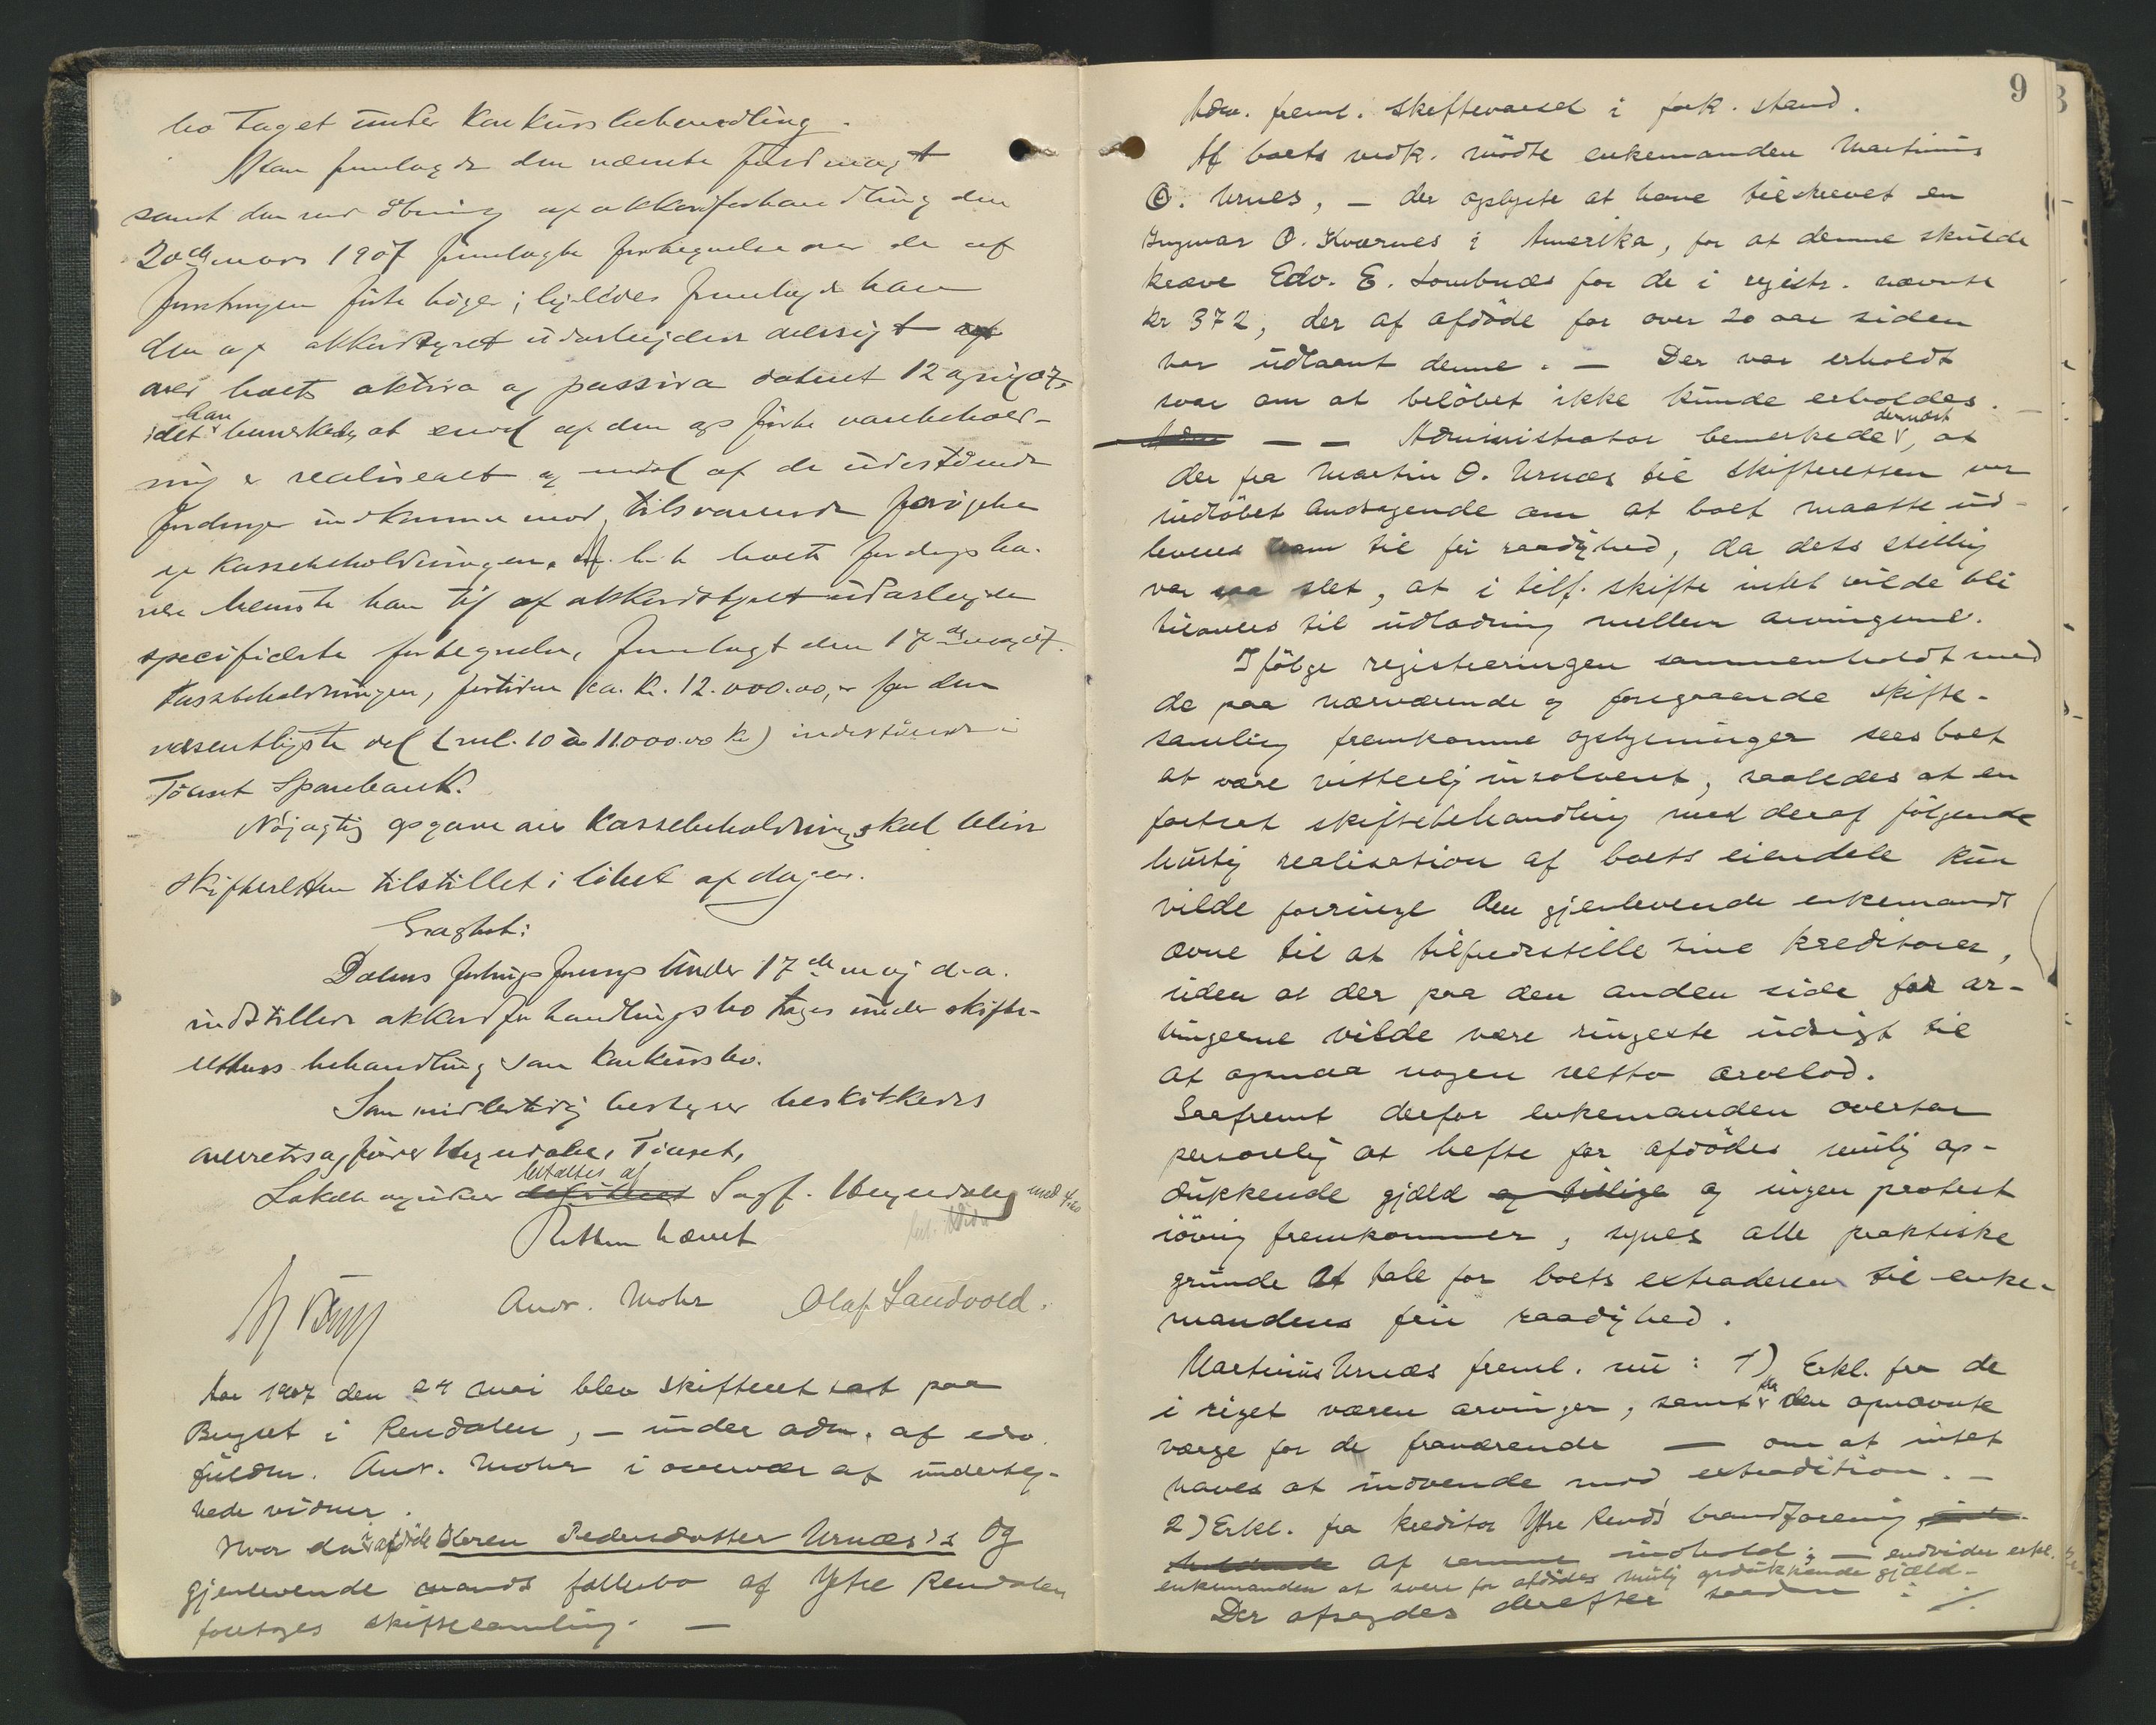 bo taget under Konkursbehandling.
Man fremlagde den nævnte fuldmagt
samt den ved åbning af akkordforhandling den
20de mars 1907 fremlagte fortegnelse over de af
forretningen førte bøger; ligeledes fremlagde han
den af akkordstyret udarbeidede oversigt
over boets aktiva og passiva dateret 12 april 07,
idet han bemerkede, at endel af den opførte varebehold-
ning er realiseret og endel af de udestående
fordringer indkomne mod tilsvarende forøgelse
af kassebeholdningen. boets fordrings ha-
vere henviste han til af akkordstyret udarbeidet
specificerte fortegnelse, fremlagt den 17de mai 07.
Kassebeholdningen, fortiden ca. kr. 12.000.00, er for den
væsentligste del (mel. 10 à 11.000.00 kr) indestående i
Tönset Sparebank.
Nöjagtig opgave over kassebeholdning skal blive
skifteretten tilstillet i løbet af dagen.
Eragtet:
Dalens forbrugsforenings under 17de maj d.a.
indstillede akkordforhandlingsbo tages under skifte-
rettens behandling som konkursbo.
Som midlertidig bestyrer beskikkedes
overretssagfører Utgaardalen, Tönset.
Lokale betaltes af Sagf. med 4.00
Retten hævet
Andr. Mohr Olaf Sandvold.
Aar 1907 den 24 mai blev skifteret sat paa
Berget i Rendalen, – under adm. af edsv.
fuldm. Andr. Mohr i overvær af underteg-
nede vidner.
Hvor da i afdöde Karen Pedersdatter Urnæs's og
gjenlevende mands fællesbo af Ytre Rendalen
foretoges skiftesamling. –
9
Adm. freml. skiftevarsel i fork. stand.
Af boets vedk. mödte enkemanden Martinus
O. Urnes, – der oplyste at have tilskrevet en
Ingvar O. Kværnes i Amerika, for at denne skulde
kræve Edv. E. Lombnæs for de i registr. nævnte
kr 372, der af afdöde for over 20 aar siden
var udlaant denne. – Der var erholdt
svar om at belöbet ikke kunde erholdes. –
– – Administrator bemerkede dernæst, at
der fra Martin O. Urnæs til skifteretten var
indlöbet andragende om at boet maatte ud-
leveres ham til fri raadighed, da dets stilling
var saa slet, at i tilf. skifte intet vilde bli
tilovers til udlodning mellem arvingerne.
Ifölge registreringen sammenholdt med
de paa nærværende og foregaaende skifte-
samling fremkomne oplysninger sees boet
at være vitterlig insolvent, saaledes at en
fortsat skiftebehandling med deraf fölgende
hurtig realisation af boets eiendele kun
vilde forringe den gjenlevende enkemands
ævne til at tilfredsstille sine kreditorer,
uden at der paa den anden side for ar-
vingerne vilde være ringeste udsigt til
at opnaa nogen netto arvelod.
Saafremt derfor enkemanden overtar
personlig at hefte for afdödes mulig op-
dukkende gjæld og tillige og ingen protest
iövrig fremkommer, synes alle praktiske
grunde at tale for boets extraderen til enke-
mandens frie raadighed.
Martinus Urnæs freml. nu: 1) Erkl. fra de
i riget væren arvinger, samt fra den opnævnte
værge for de fraværende — om at intet
haves at indvende mod extradition. –
2) Erkl. fra kreditor Ytre Rend's brandforening,
af samme indhold; – endvidere erkl.
enkemanden at svare for afdödes mulig opdukkende gjæld –
Der afsagdes derefter saadan : ./.